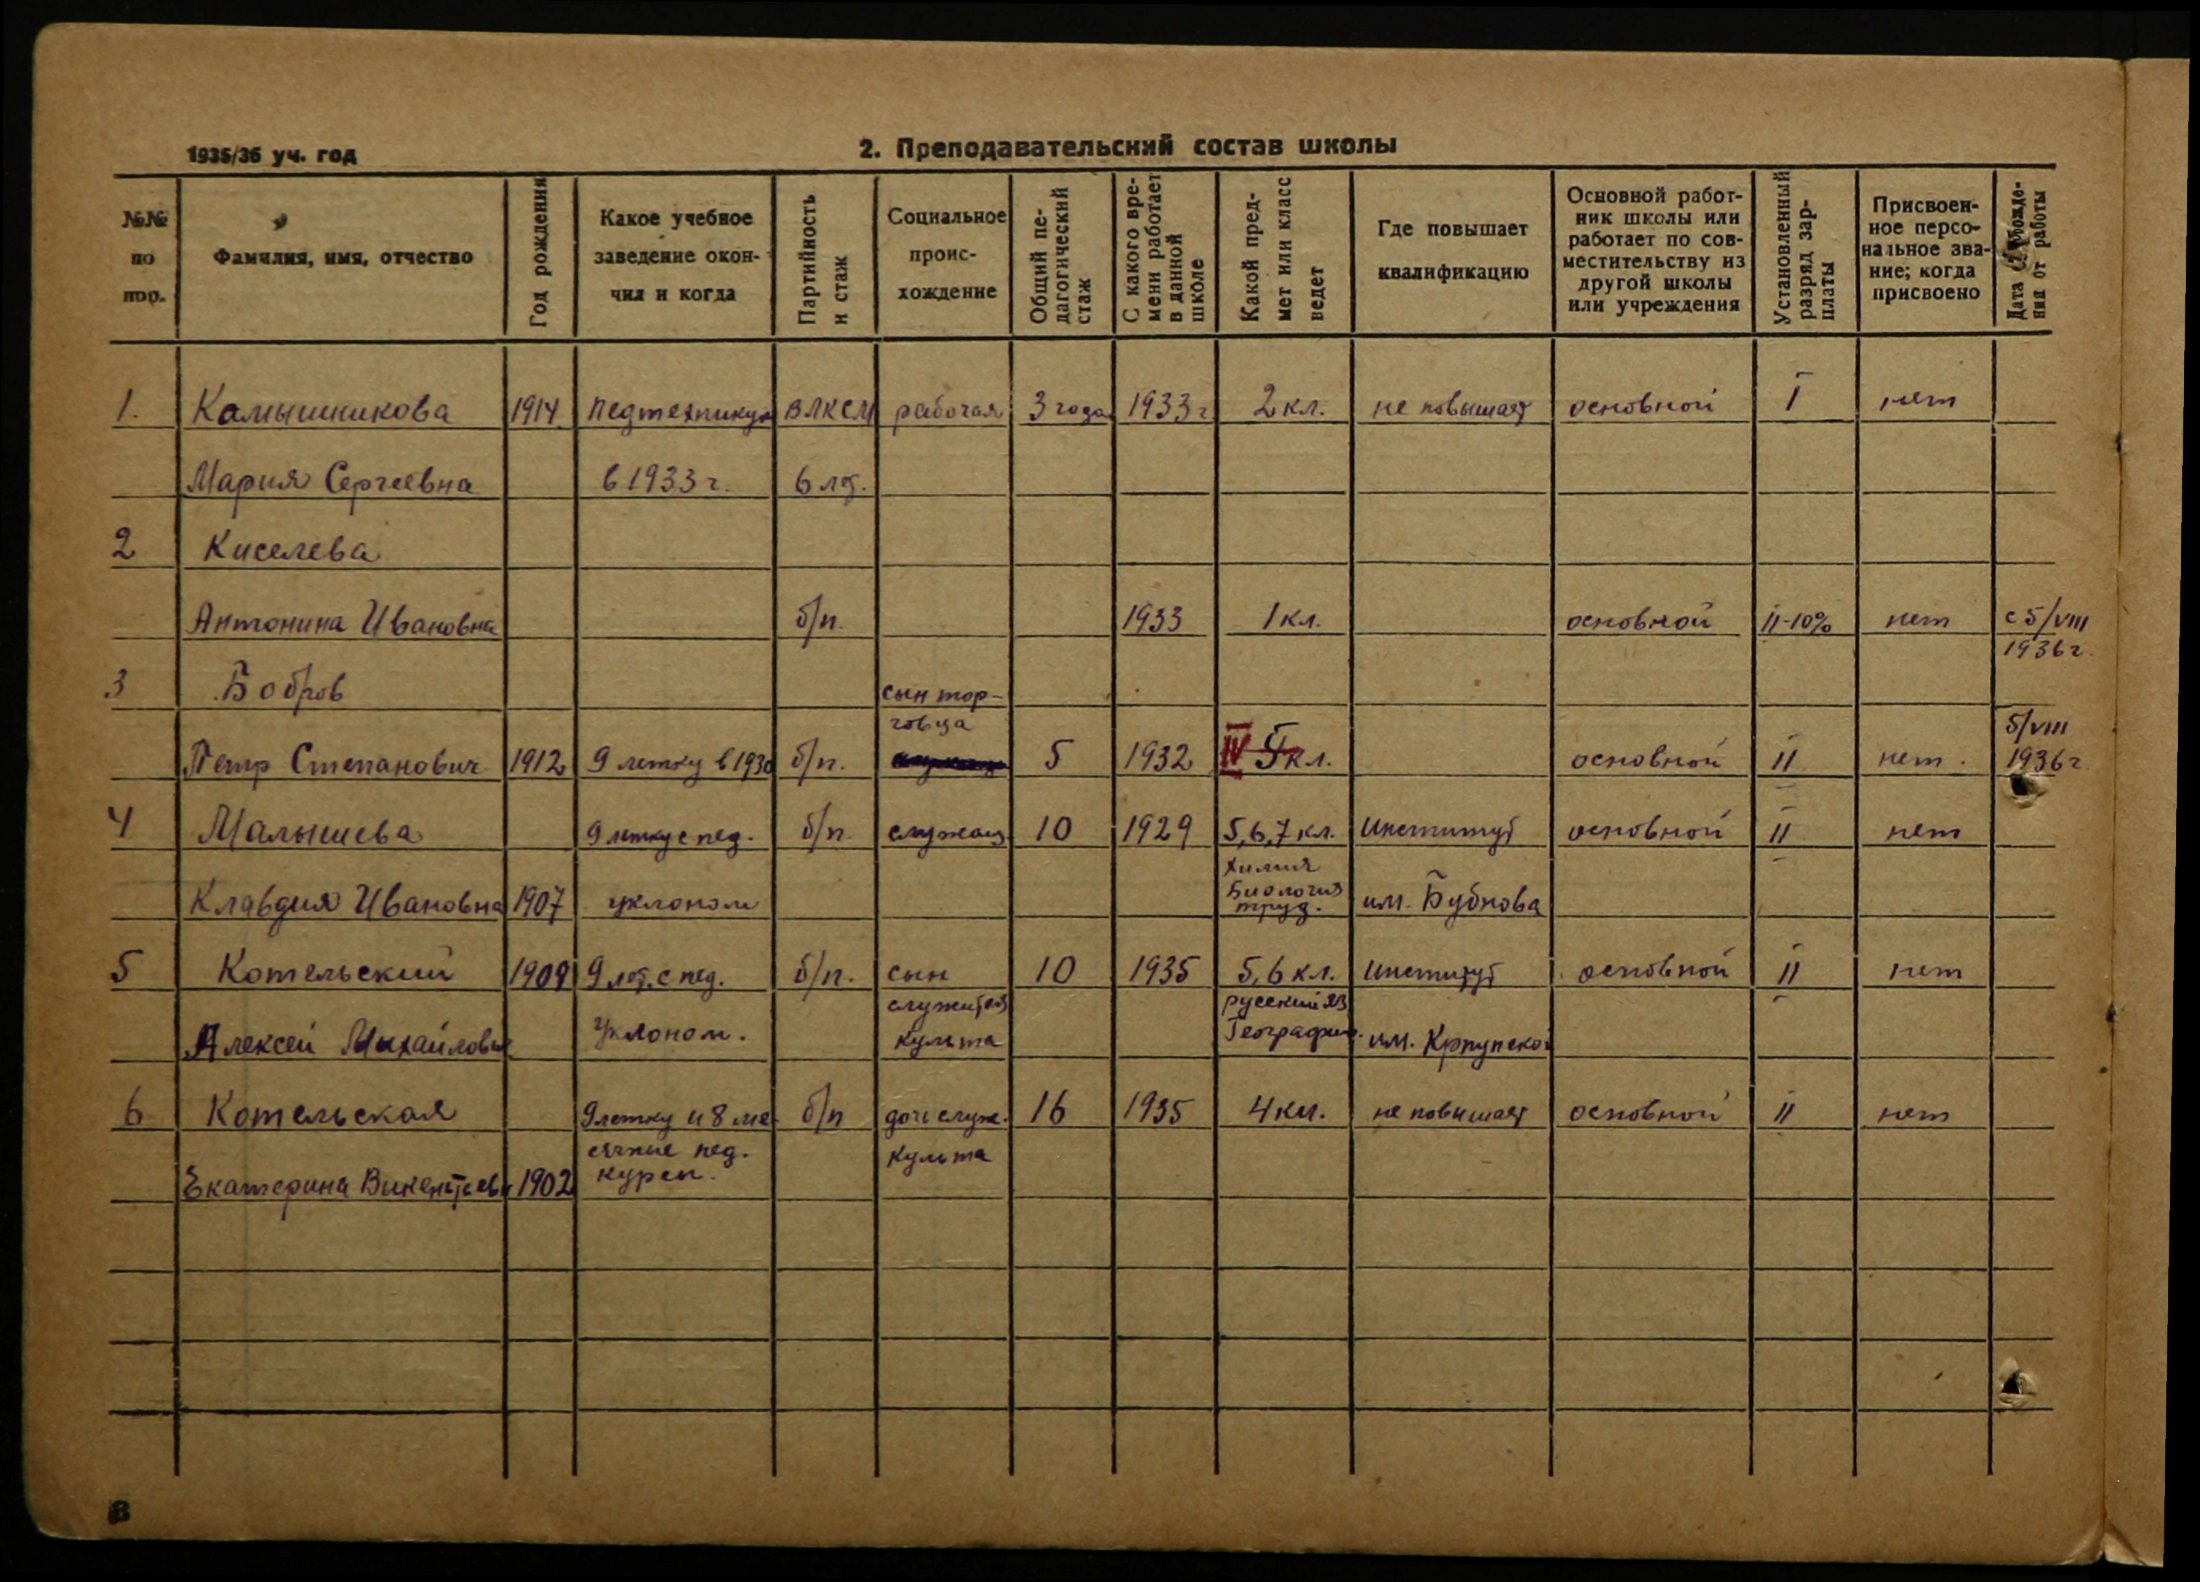 1935/36 уч. год
2. Преподавательский состав школы
№№ по пор.
Фамилия, имя, отчество
Год рождения
Какое учебное заведение окончил и когда
Партийность и стаж
Социальное происхождение
Общий педагогический стаж
С какого времени работает в данной школе
Какой предмет или класс ведет
Где повышает квалификацию
Основной работник школы или работает по совместительству из другой школы или учреждения
Установленный разряд зарплаты
Присвоенное персональное звание; когда присвоено
Дата освобождения от работы
1. Камышникова 1914 педтехникум ВЛКСМ рабочая 3 года 1933 г 2 кл. не повышает основной I нет
Мария Сергеевна в 1933 г. 6 лет.
2 Киселева
Антонина Ивановна б/п. 1933 1 кл. основной II-10% нет с 5/VIII
1936 г.
3 Бобров сын тор-
говца 5/VIII
Петр Степанович 1912 9 летку в 1930 б/п. 5 1932 IV 5 кл. основной II нет. 1936 г.
4 Малышева 9 летку с пед. б/п. служащ 10 1929 5,6,7 кл. Институт основной II нет
химия
Биология
Клавдия Ивановна 1907 уклоном труд. им. Бубнова
5 Котельский 1909 9 лет. с пед. б/п. сын 10 1935 5,6 кл. Институт основной II нет
служителя русский яз
Алексей Михайлович уклоном. культа География. им. Крупской
6 Котельская 9 летку и 8 ме- б/п дочь служ. 16 1935 4 кл. не повышает основной II нет
сячные пед. культа
Екатерина Викентьевн 1902 курсы.
8